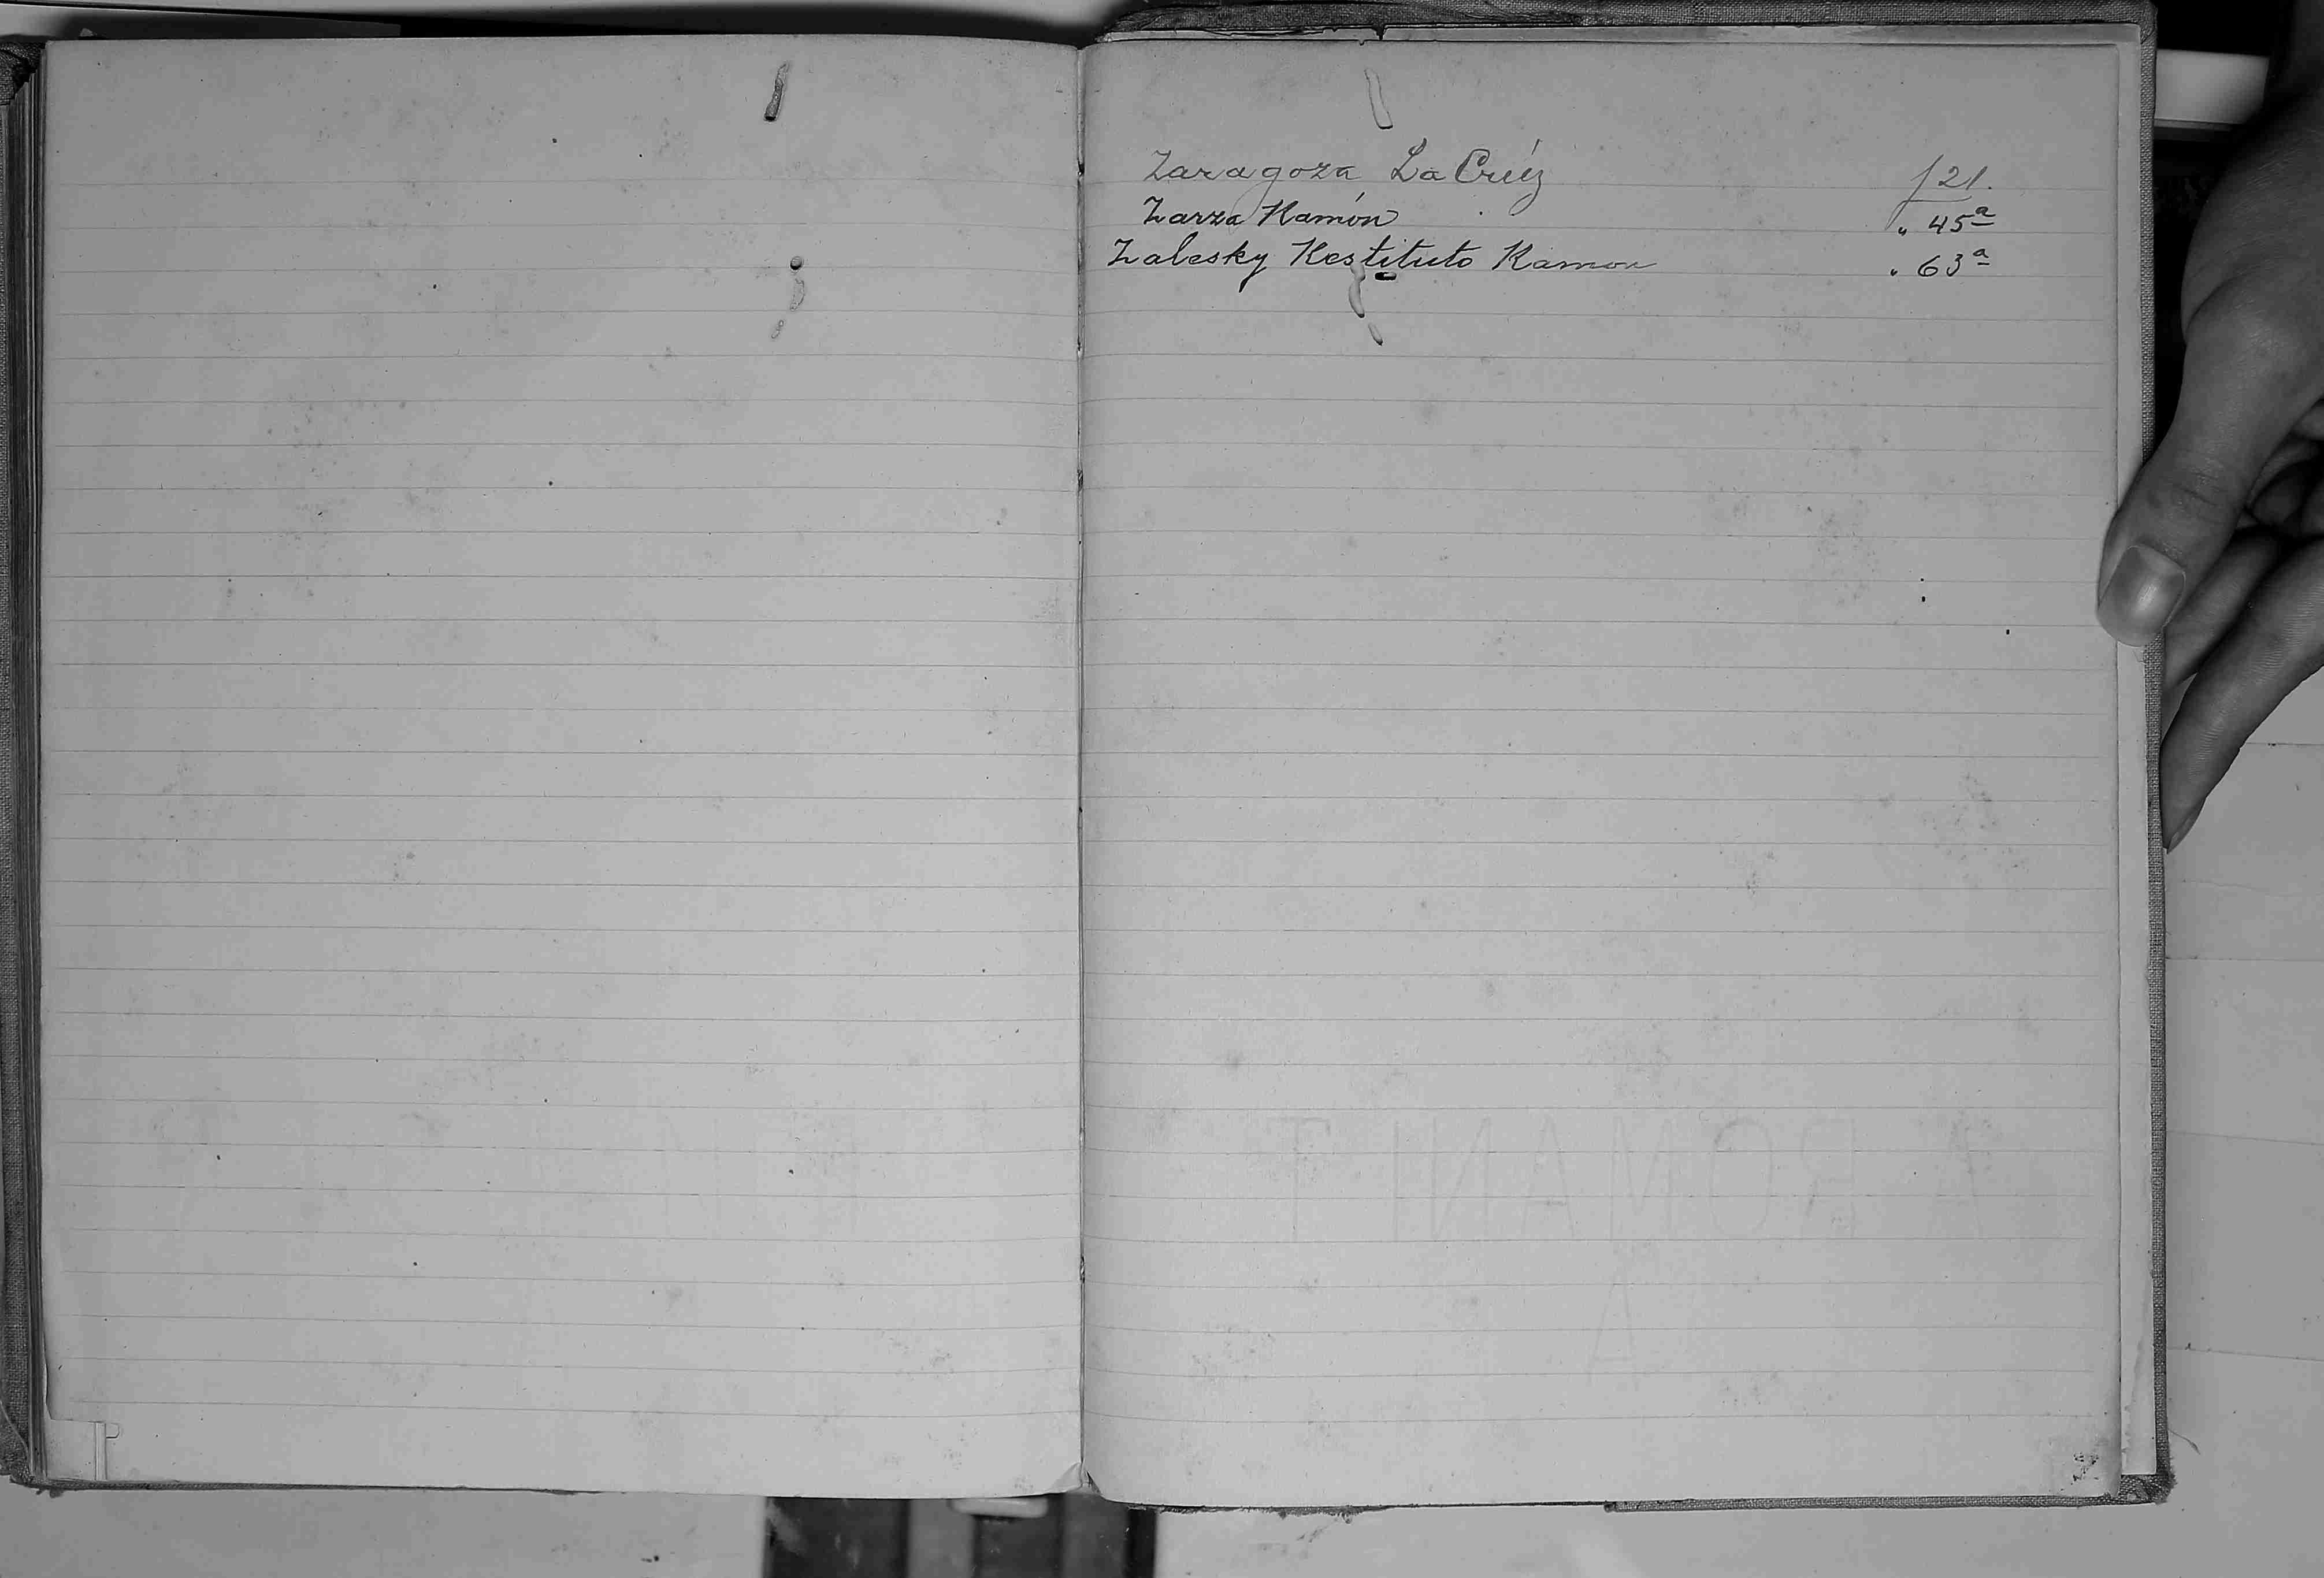 Zaragoza La Crúz f 21.
Zarza Ramón " 45ª
Zalesky Restituto Ramon " 63ª
A ROMANI T
A
Z